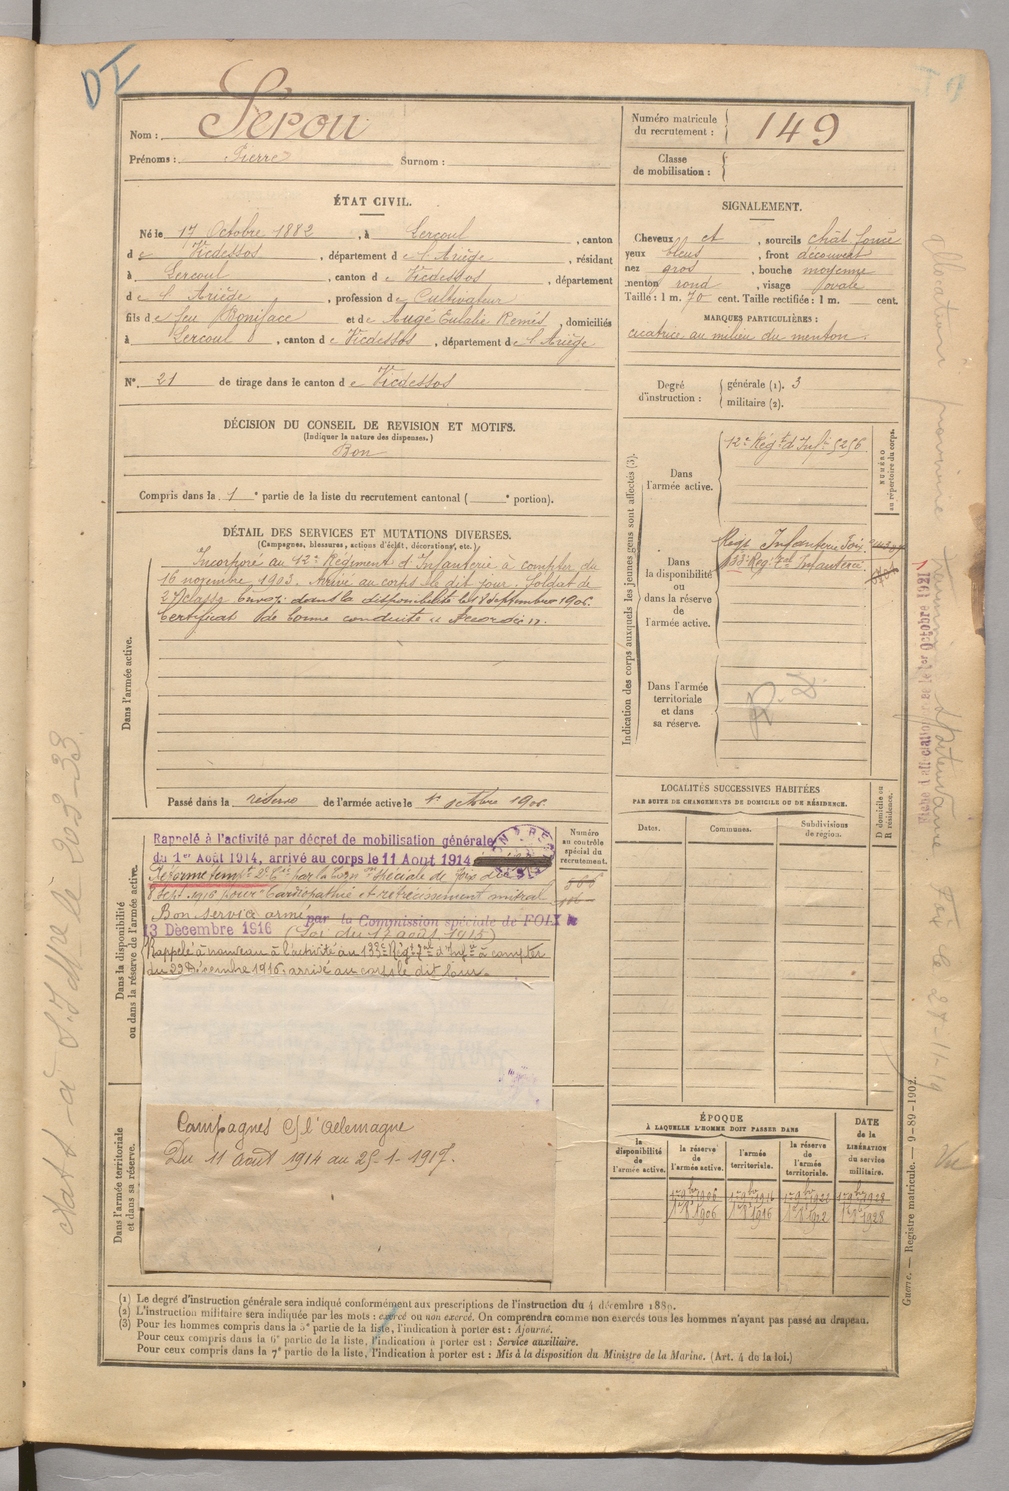 DI
Nom : Serou
Prénoms : Pierre Surnom :
Numéro matricule du recrutement : 149
Classe de mobilisation :
ÉTAT CIVIL.
Né le 17 Octobre 1882, à Lercoul, canton
de Vicdessos, département de l'Ariège, résidant
à Lercoul, canton de Vicdessos, département
de l'Ariège, profession de Cultivateur
fils de feu Boniface et de Augé Eulalie Remés, domiciliés
à Lercoul, canton de Vicdessos, département de l'Ariège
N° 21 de tirage dans le canton de Vicdessos
SIGNALEMENT.
Cheveux et, sourcils chât foncé
yeux bleus, front découvert
nez gros, bouche moyenne
menton rond, visage ovale
Taille : 1 m. 70 cent. Taille rectifiée : 1 m. cent.
MARQUES PARTICULIÈRES :
cicatrice au milieu du menton.
Degré d'instruction : générale (1). 3
militaire (2).
DÉCISION DU CONSEIL DE REVISION ET MOTIFS.
(Indiquer la nature des dispenses.)
Bon
Compris dans la 1e partie de la liste du recrutement cantonal ( e portion).
DÉTAIL DES SERVICES ET MUTATIONS DIVERSES.
(Campagnes, blessures, actions d'éclat, décorations, etc.)
Dans l'armée active.
Incorporé au 12e Régiment d'Infanterie à compter du
16 novembre 1903. Arrivé au corps le dit jour. Soldat de
2e classe. Envoyé dans la disponibilité le 18 septembre 1906.
Certificat de bonne conduite « Accordé ».
Passé dans la réserve de l'armée active le 1er octobre 1906
Indication des corps auxquels les jeunes gens sont affectés (3).
NUMÉRO au répertoire du corps.
Dans l'armée active.
12e Régt d'Infie 5256
Dans la disponibilité ou dans la réserve de l'armée active.
Regt Infanterie Foix
133e Regt d'Infanterie
Dans l'armée territoriale et dans sa réserve.
LOCALITÉS SUCCESSIVES HABITÉES
PAR SUITE DE CHANGEMENTS DE DOMICILE OU DE RÉSIDENCE.
Dates. Communes. Subdivisions de région. D domicile ou R résidence.
Dans la disponibilité ou dans la réserve de l'armée active.
Numéro au contrôle spécial du recrutement.
Rappelé à l'activité par décret de mobilisation générale
du 1er Août 1914, arrivé au corps le 11 Août 1914
Réformé tempre 2e Cie par la Comon Spéciale de Foix du
8 Sept. 1916 pour « Cardiopathie et rétrécissement mitral
Bon service armé par la Commission spéciale de FOIX le
13 Décembre 1916 (Loi du 17 août 1915)
Rappelé à nouveau à l'activité au 133e Régt d'Infie à compter
du 22 Décembre 1916, arrivé au corps le dit jour.
Dans l'armée territoriale et dans sa réserve.
Campagnes c/ l'Allemagne
Du 11 août 1914 au 25-1-1917.
ÉPOQUE
À LAQUELLE L'HOMME DOIT PASSER DANS
la disponibilité de l'armée active.
la réserve de l'armée active.
l'armée territoriale.
la réserve de l'armée territoriale.
DATE de la LIBÉRATION du service militaire.
1er 9bre 1906 1er 9bre 1916 1er 9bre 1922 1er 9bre 1928
1er 8bre 1906 1er 8bre 1916 1er 8bre 1922 1er 8bre 1928
(1) Le degré d'instruction générale sera indiqué conformément aux prescriptions de l'instruction du 4 décembre 1889.
(2) L'instruction militaire sera indiquée par les mots : exercé ou non exercé. On comprendra comme non exercés tous les hommes n'ayant pas passé au drapeau.
(3) Pour les hommes compris dans la 5e partie de la liste, l'indication à porter est : Ajourné.
Pour ceux compris dans la 6e partie de la liste, l'indication à porter est : Service auxiliaire.
Pour ceux compris dans la 7e partie de la liste, l'indication à porter est : Mis à la disposition du Ministre de la Marine. (Art. 4 de la loi.)
Guerre. — Registre matricule. — 9-89-1902.
1er Octobre 1921
Foix le 27-11-19
Vu